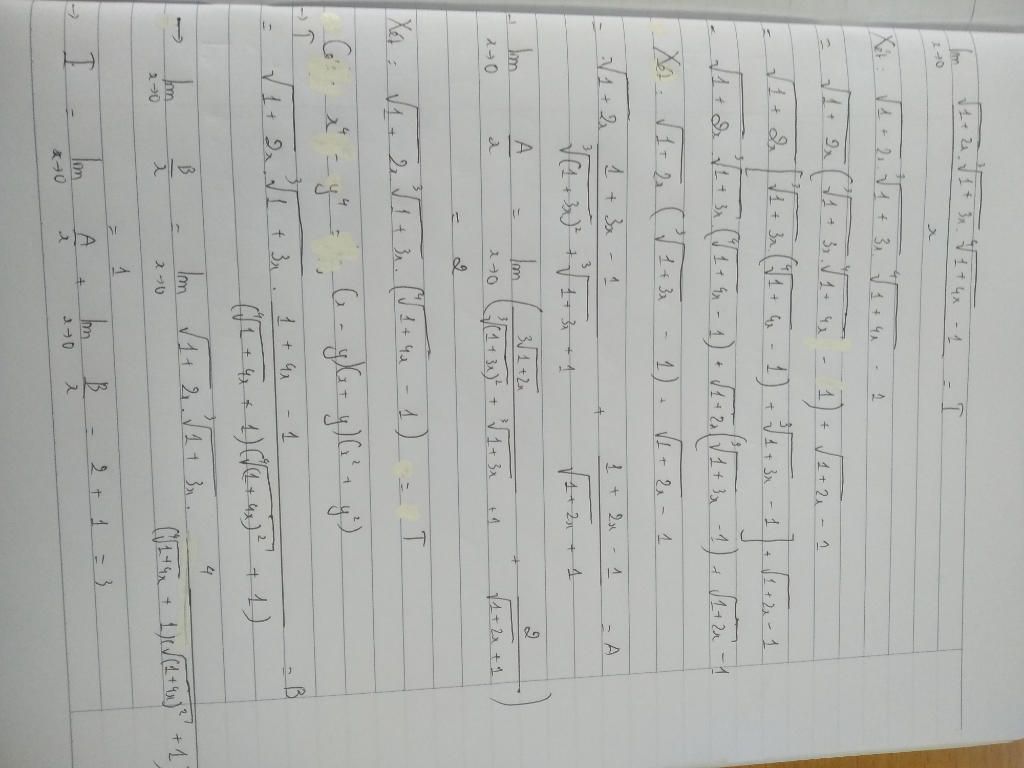 lim x→0 (√(1+2x) . ∛(1+3x) . ∜(1+4x) - 1) / x = T
Xét: √(1+2x) . ∛(1+3x) . ∜(1+4x) - 1
= √(1+2x) (∛(1+3x) . ∜(1+4x) - 1) + √(1+2x) - 1
= √(1+2x) [∛(1+3x) (∜(1+4x) - 1) + ∛(1+3x) - 1] + √(1+2x) - 1
= √(1+2x) . ∛(1+3x) (∜(1+4x) - 1) + √(1+2x) (∛(1+3x) - 1) + √(1+2x) - 1
Xét: √(1+2x) (∛(1+3x) - 1) + √(1+2x) - 1
= √(1+2x) (1+3x-1) / (∛(1+3x)² + ∛(1+3x) + 1) + (1+2x-1) / (√(1+2x) + 1) = A
→ lim x→0 A/x = lim x→0 (3√(1+2x) / (∛(1+3x)² + ∛(1+3x) + 1) + 2 / (√(1+2x) + 1))
= 2
Xét: √(1+2x) . ∛(1+3x) . (∜(1+4x) - 1)
Có: x⁴ - y⁴ = (x - y)(x + y)(x² + y²)
→ T
= √(1+2x) . ∛(1+3x) . (1+4x-1) / ((∜(1+4x) + 1)(∜(1+4x)² + 1)) = B
→ lim x→0 B/x = lim x→0 √(1+2x) . ∛(1+3x) . 4 / ((∜(1+4x) + 1)(√(1+4x)² + 1)
= 1
→ T = lim x→0 A/x + lim x→0 B/x = 2 + 1 = 3